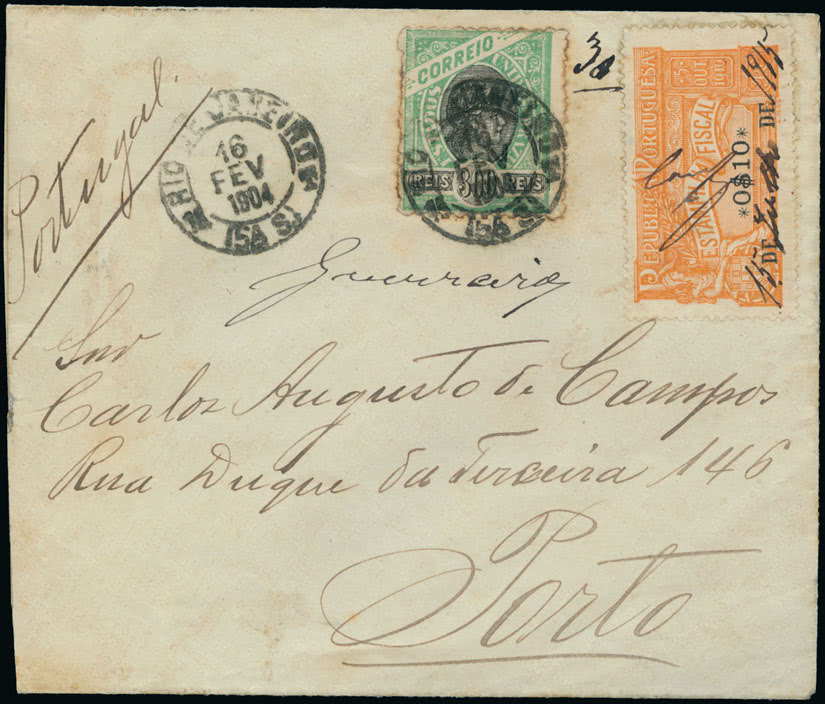 Portugal.
RIO DE JANEIRO
16
FEV
1904
(5A S)
CORREIO
REIS 300 REIS
REPUBLICA PORTUGUESA
5 OUT 1910
ESTAMPILHA FISCAL
*0$10*
15 DE DE 1915
Guerreiro
Snr
Carlos Augusto de Campos
Rua Duque da Terceira 146
Porto